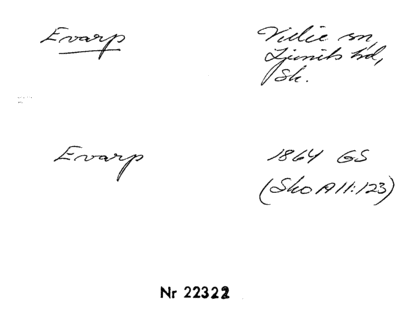 Evarp
Villie sn,
Ljunits hd,
Sk.
Evarp
1864 GS
(Sko A11:123)
Nr 22322